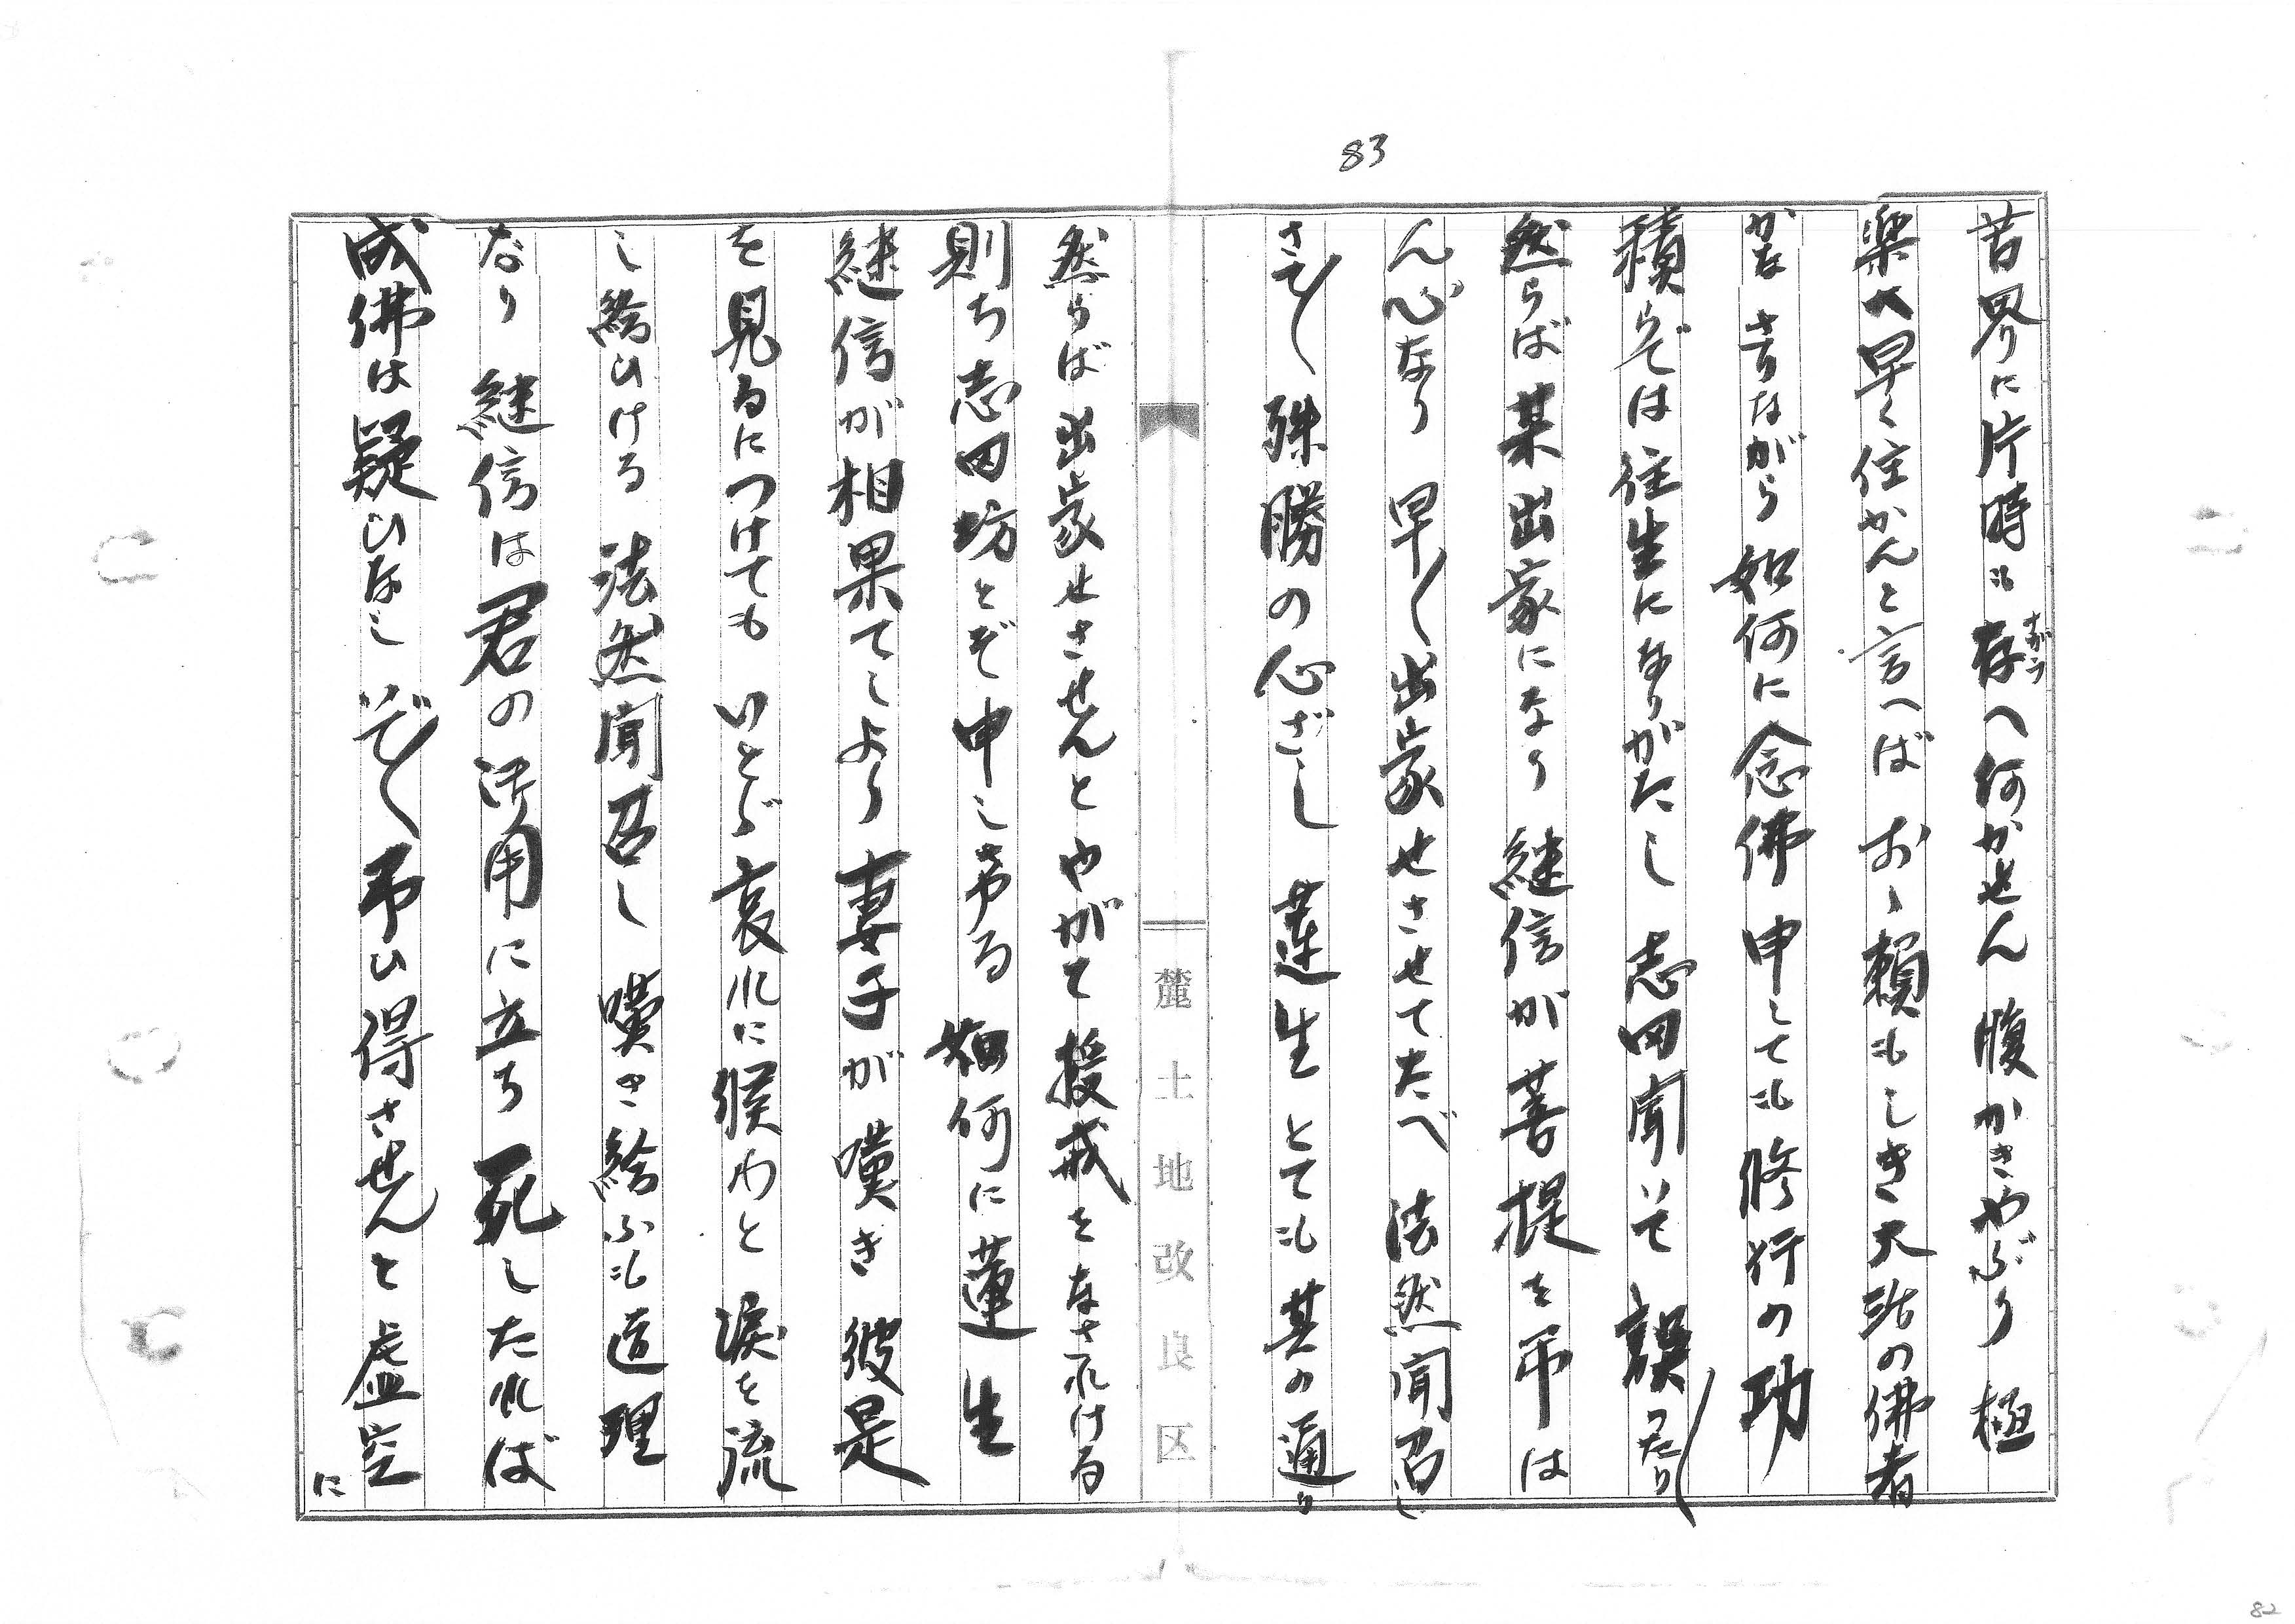 83
苦界に片時も存へ何かせん 腹かきやぶり 極
ながら
楽へ早く住かんと言へば おゝ頼もしき大活の佛者
かな さりながら 如何に念佛申しても修行の功
積らでは往生になりがたし 志田聞いて 誤つたり
然らば某出家になり 継信が菩提を弔は
ん心なり 早/\出家せさせてたべ 法然聞召し
さて/\殊勝の心ざし 蓮生とても其の通り
然らば出家せさせんと やがて授戒をなされける
則ち志田坊とぞ申しける 如何に蓮生
継信が相果てしより 妻子が嘆き 彼是
を見るにつけても いとゞ哀れに候わと 涙を流
し給ひける 法然聞召し 嘆き給ふも道理
なり 継信は君の御用に立ち 死したれば
成佛は疑ひなし いで/\弔ひ得させんと 虚空
に
麓土地改良区
82